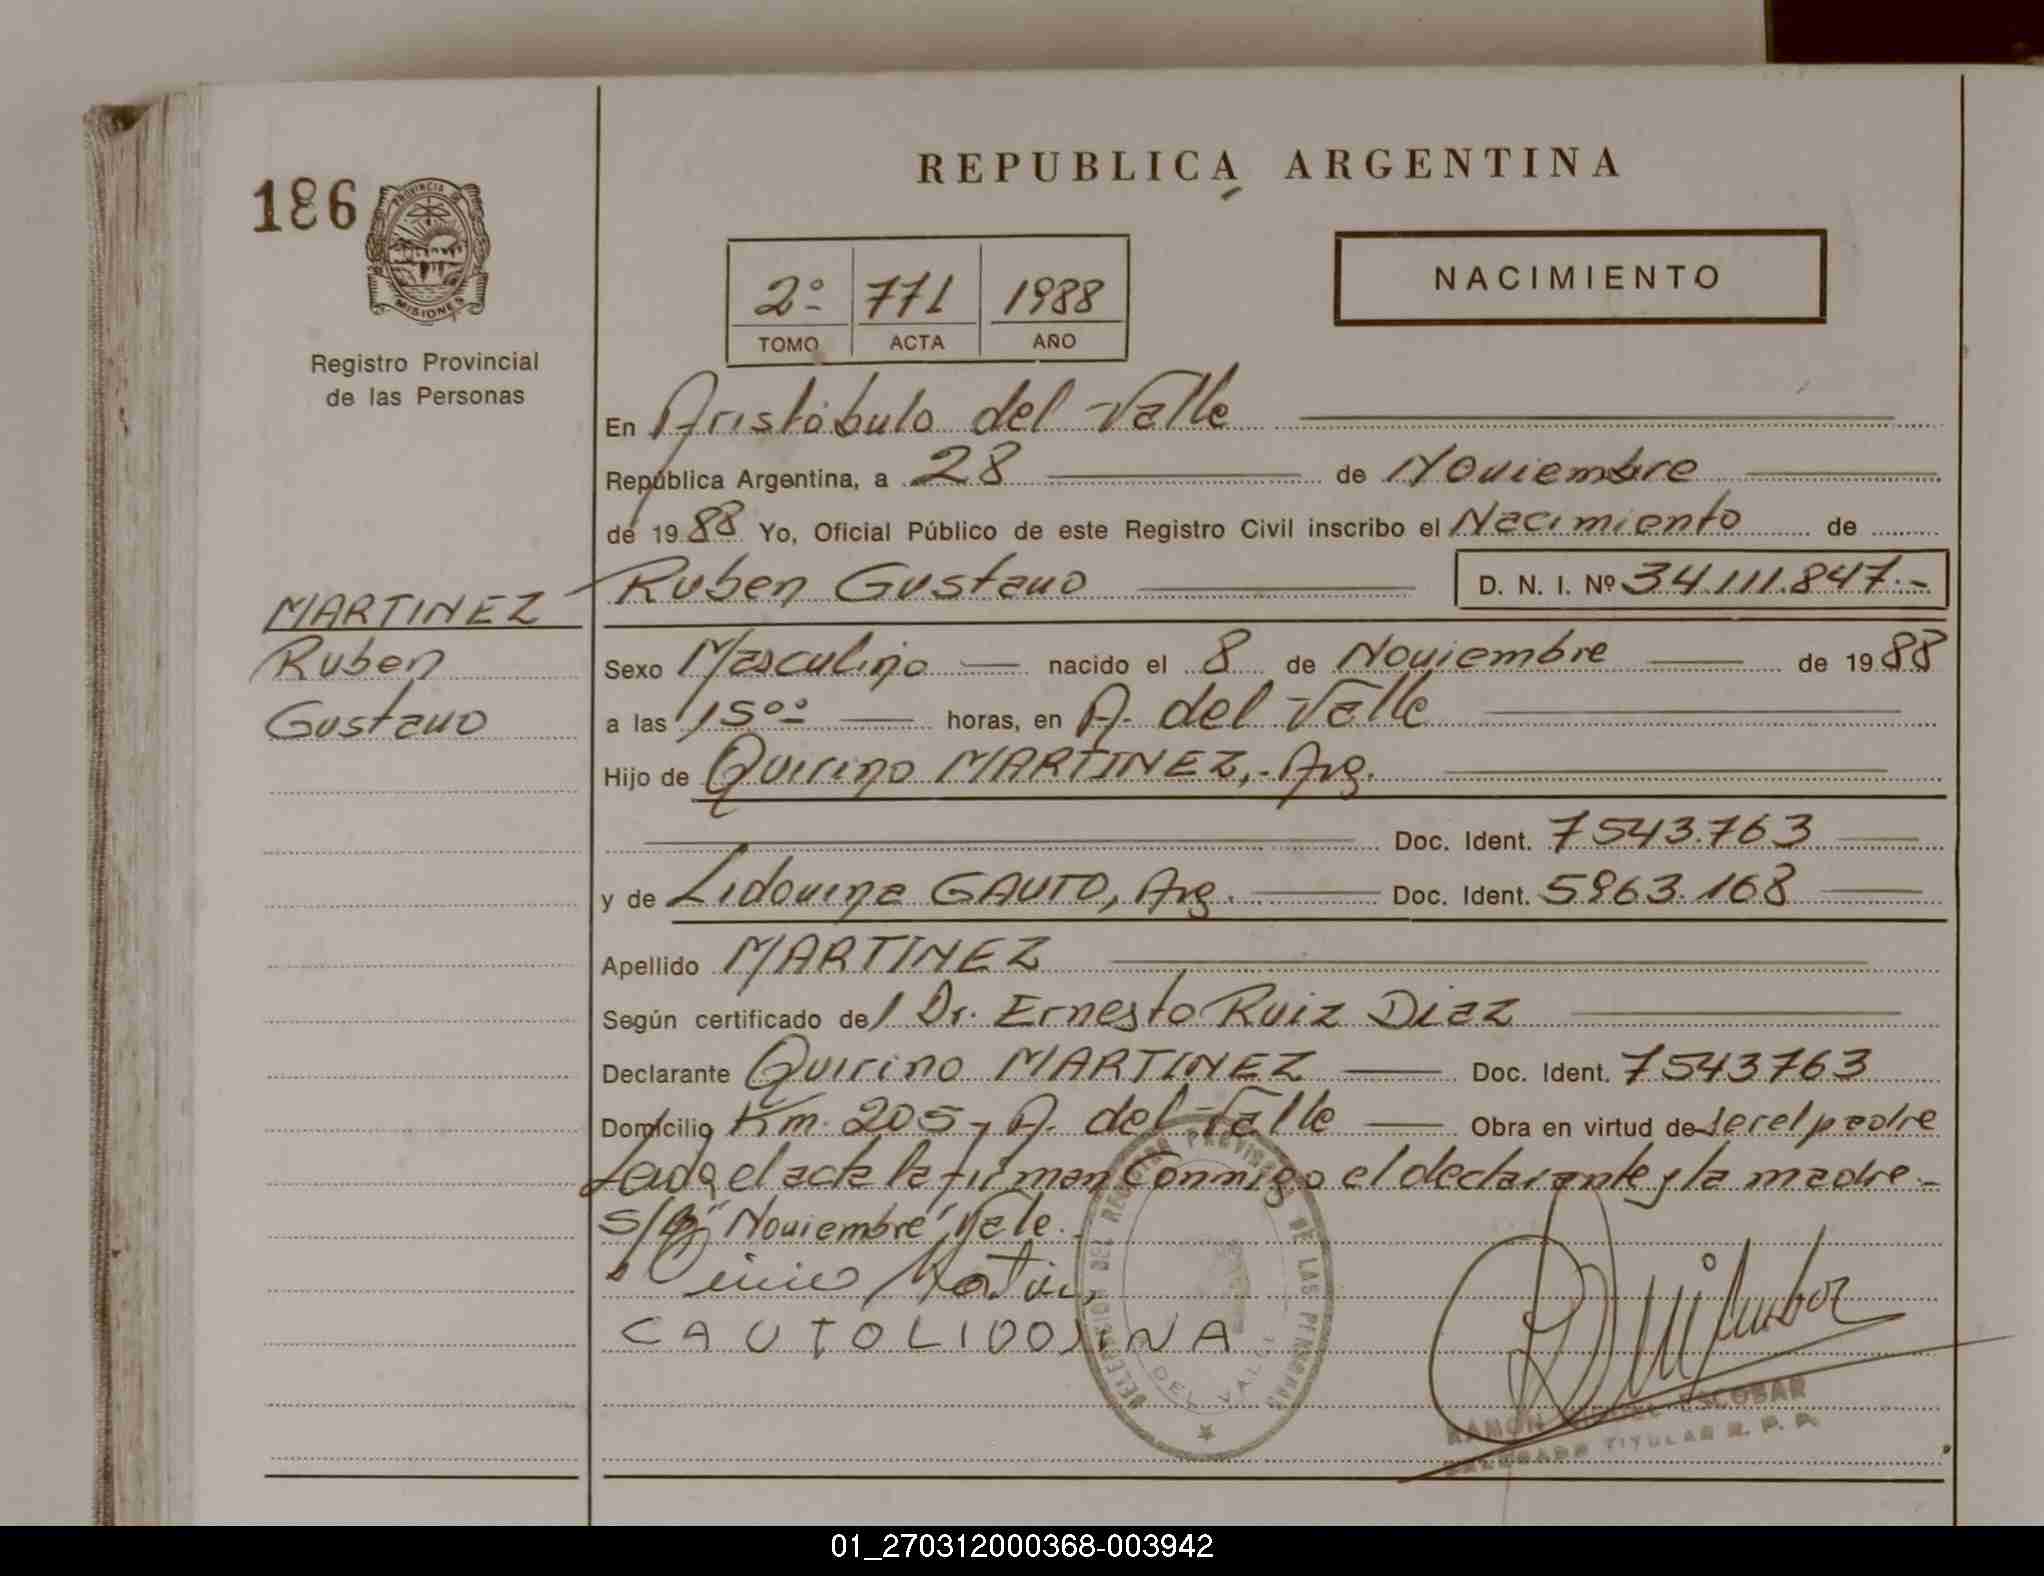 REPUBLICA ARGENTINA
186
PROVINCIA DE
MISIONES
Registro Provincial
de las Personas
NACIMIENTO
2º 771 1988
TOMO ACTA AÑO
En Aristóbulo del Valle
República Argentina, a 28 de Noviembre
de 1988 Yo, Oficial Público de este Registro Civil inscribo el Nacimiento de
Ruben Gustavo D. N. I. Nº 34.111.847.-
MARTINEZ
Ruben
Gustavo
Sexo Masculino nacido el 8 de Noviembre de 1988
a las 15ºº horas, en A. del Valle
Hijo de Quirino MARTINEZ,- Arg.
Doc. Ident. 7543.763
y de Lidovina GAUTO, Arg. Doc. Ident. 5963.168
Apellido MARTINEZ
Según certificado del Dr. Ernesto Ruiz Diaz
Declarante Quirino MARTINEZ Doc. Ident. 7543763
Domicilio Km. 205 - A. del Valle Obra en virtud de ser el padre
Leida el acta la firman conmigo el declarante y la madre.-
"Noviembre" Vale.
CAUTOLIDOVINA
DELEGACION DEL REGISTRO PROVINCIAL DE LAS PERSONAS
DEL VALLE
RAMON MIGUEL ESCOBAR
DELEGADO TITULAR R. P. P.
01_270312000368-003942